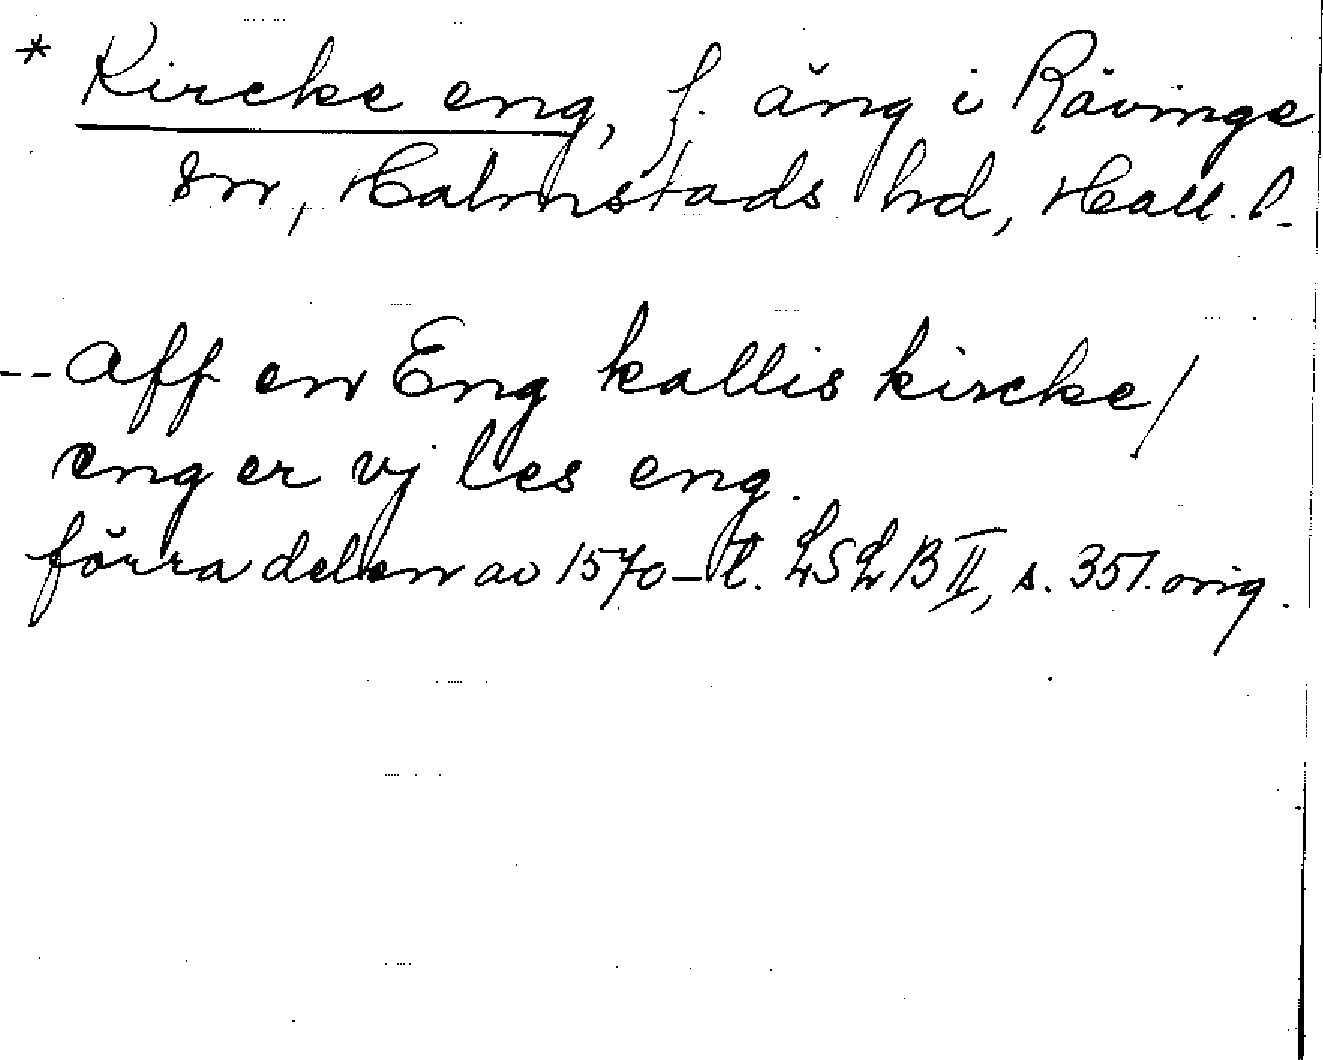 * Kircke eng, f. äng i Rävinge
sn, Halmstads hd, Hall. l.
-- aff en Eng kallis kircke/
eng er vj les eng.
förra delen av 1570-t. LSLB II, s. 357. orig.